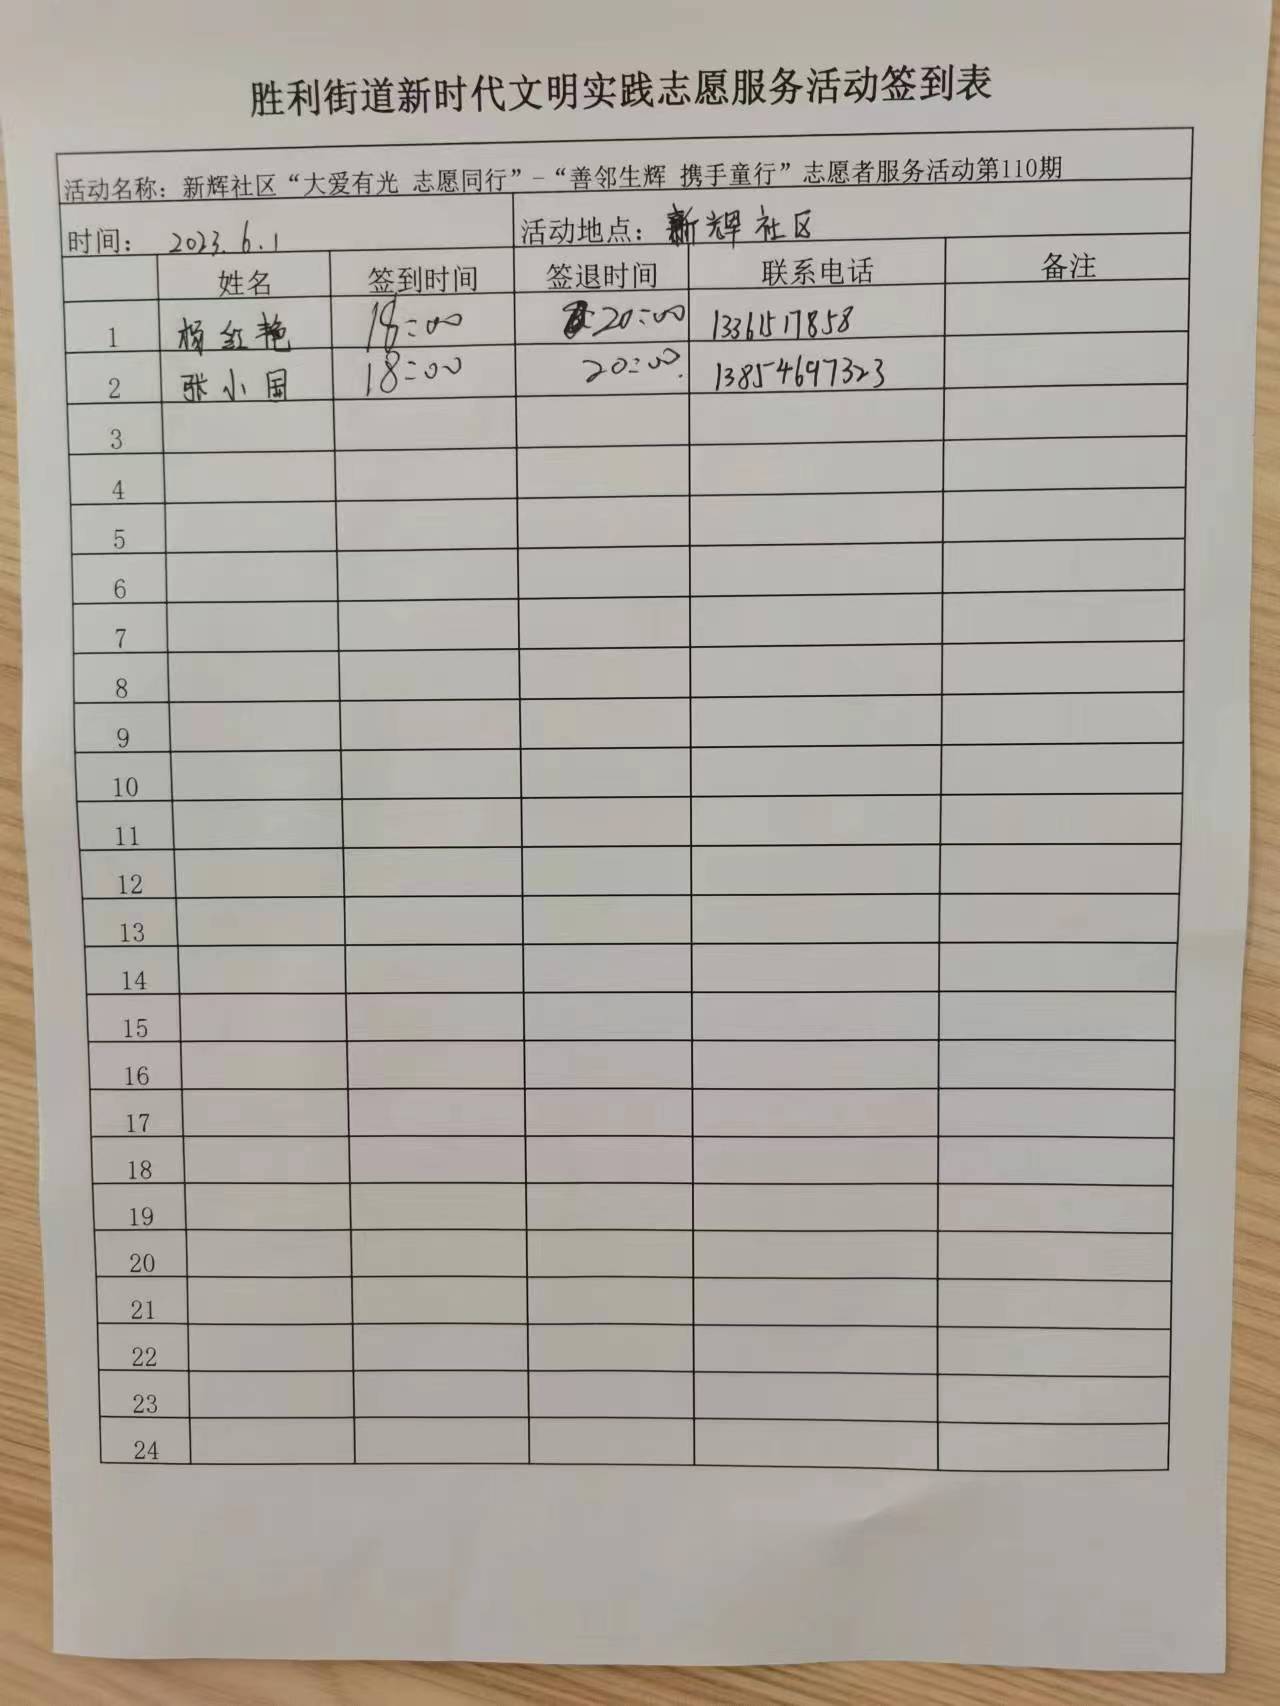 胜利街道新时代文明实践志愿服务活动签到表
活动名称：新辉社区“大爱有光 志愿同行”-“善邻生辉 携手童行”志愿者服务活动第110期
时间： 2023.6.1 活动地点：新辉社区
姓名 签到时间 签退时间 联系电话 备注
1 杨红艳 18:00 20:00 13361517858
2 张小国 18:00 20:00. 13854697323
3
4
5
6
7
8
9
10
11
12
13
14
15
16
17
18
19
20
21
22
23
24